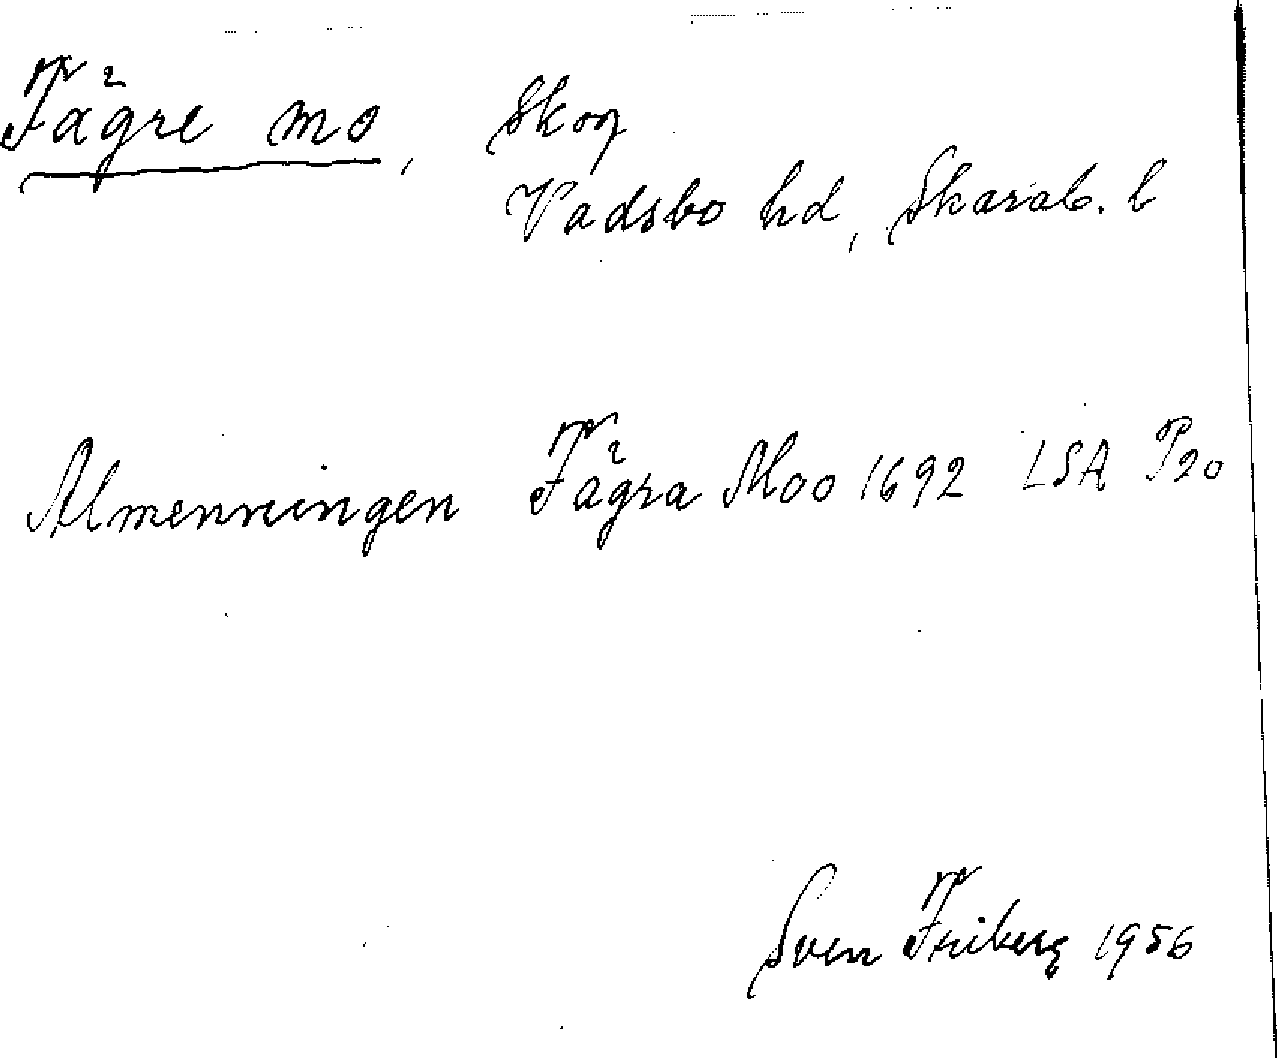 Fägre mo, Skog
Vadsbo hd, Skarab. l
Almenningen Fägra Moo 1692 LSA P20
Sven Friberg 1956